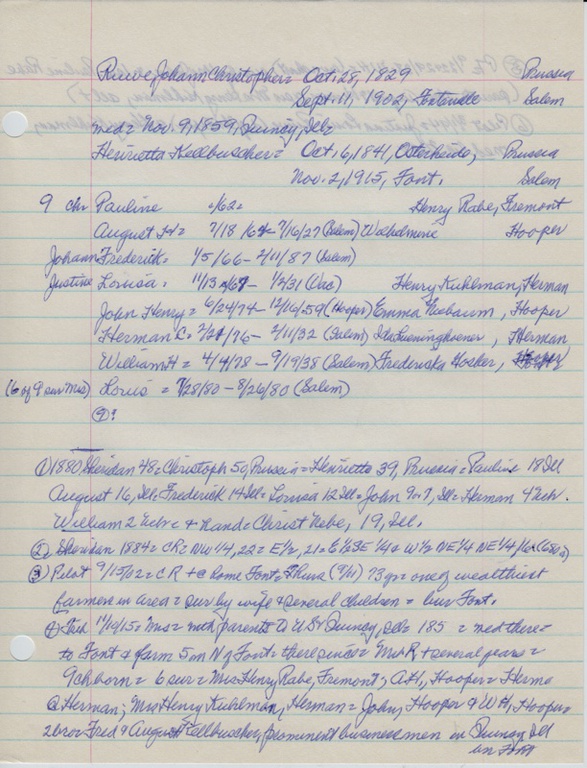 Ruwe Johann Christopher = Oct. 28, 1829 Prussia
Sept. 11, 1902, Fontenelle Salem
med = Nov. 9, 1859, Quincy, Ill =
Henrietta Kellbuscher = Oct. 6, 1841, Osterheide, Prussia
Nov. 2, 1915, Font. Salem
9 chr Pauline -/62 = Henry Rabe, Fremont
August H = 7/18/64 - 7/16/27 (Salem) Hooper
Johann Frederick = 1/5/66 - 2/11/87 (Salem)
Justine Louisa = 11/13 /67 - 1/2/31 (Vac) Henry Kuhlman, Herman
John Henry = 6/24/74 - 12/16/59 (Hooper) Emma , Hooper
Herman C = /76 - 2/11/32 (Salem) Ida Lueninghoener, Herman
William H = 4/4/78 - 9/19/38 (Salem) Fredericka , Hooper
(6 of 9 sur Mrs) Louis = 7/28/80 - 8/26/80 (Salem)
9?
① 1880 Sheridan 48 = Christoph 50, Prussia = Henrietta 39, Prussia = Pauline 18 Ill
August 16, Ill = Frederick 14 Ill = Louisa 12 Ill = John 9 = ?, Ill = Herman 4 Neb.
William 2 Nebr = & hand = Christ Rabe, 19, Ill.
② Sheridan 1884 = CR = NW 1/4, 22 = E 1/2, 21 = E 1/2 SE 1/4 & W 1/2 NE 1/4 NE 1/4, 16
③ Pilot 9/15/02 = C R + @ home Font = Thurs (9/11) 73 yr = one of wealthiest
farmers in area = sur by wife & several children = bur Font.
④ 11/10/15 = Mrs = with parents to US, Quincy, Ill = 185 = med there =
to Font & farm 5 m N of Font = there since = Mr R + several years =
9 ch born = 6 sur = Mrs Henry Rabe, Fremont; AH, Hooper = Herman
@ Herman; Mrs Henry Kuhlman, Herman = John, Hooper & WH, Hooper =
2 bro = Fred & August Kellbuscher, prominent businessmen in Quincy Ill
in Font